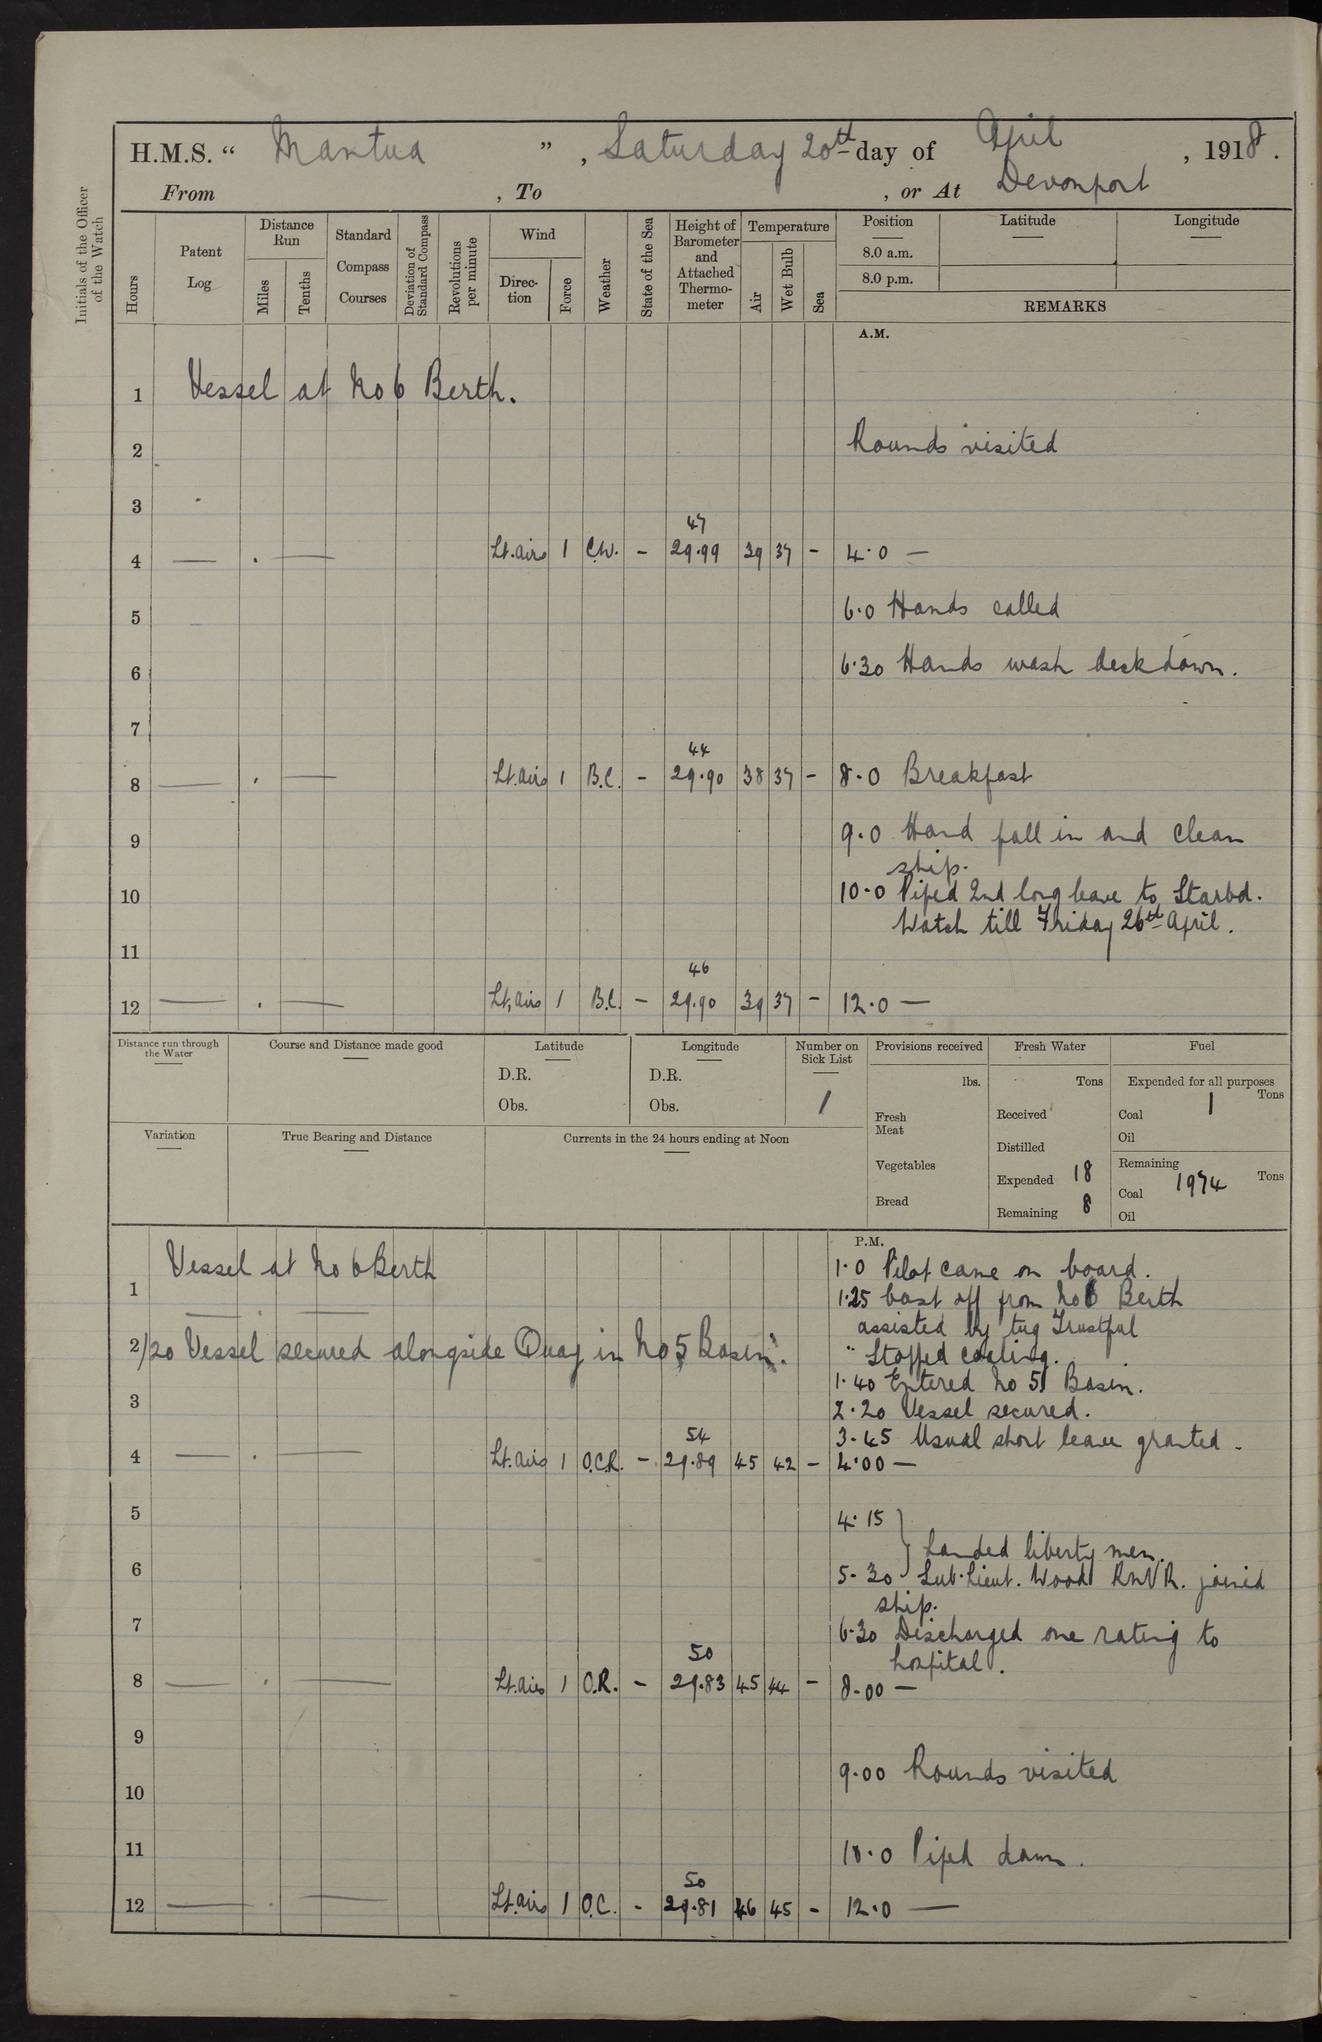 H.M.S. “ Mantua ” , Saturday 20th day of April , 1918 .
From , To , or At Devonport
Initials of the Officer of the Watch
Hours
Patent Log
Distance Run
Miles
Tenths
Standard Compass Courses
Deviation of Standard Compass
Revolutions per minute
Wind
Direction
Force
Weather
State of the Sea
Height of Barometer and Attached Thermometer
Temperature
Air
Wet Bulb
Sea
Position Latitude Longitude
8.0 a.m.
8.0 p.m.
REMARKS
A.M.
1 Vessel at No 6 Berth.
2 Rounds visited
3
47
4 — . — Lt. airs 1 C.W. - 29.99 39 37 - 4.0 —
5 6.0 Hands called
6 6.30 Hands wash deck down.
7
44
8 — . — Lt. airs 1 B.C. - 29.90 38 37 - 8.0 Breakfast
9 9.0 Hand fall in and clean
ship.
10 10.0 Piped 2nd long leave to Starbd.
Watch till Friday 26th April.
11
46
12 — . — Lt. airs 1 B.C. - 29.90 39 37 - 12.0 —
Distance run through the Water
Course and Distance made good
Latitude
D.R.
Obs.
Longitude
D.R.
Obs.
Number on Sick List
1
Provisions received
lbs.
Fresh Meat
Vegetables
Bread
Fresh Water
Tons
Received
Distilled
Expended 18
Remaining 8
Fuel
Expended for all purposes
Tons
Coal 1
Oil
Remaining
Tons
Coal 1974
Oil
Variation
True Bearing and Distance
Currents in the 24 hours ending at Noon
P.M.
Vessel at No 6 Berth 1.0 Pilot came on board.
1 1.25 Cast off from No 6 Berth
assisted by tug Trustful
2 /20 Vessel secured alongside Quay in No 5 Basin. " Stopped coaling.
1.40 Entered No 5 Basin.
3 2.20 Vessel secured.
54 3.45 Usual short leave granted.
4 — . — Lt. airs 1 O.C.R. - 29.89 45 42 - 4.00 —
5 4.15
} Landed liberty men.
6 5.30 Sub. Lieut. Wood RNVR. joined
ship.
7 6.30 Discharged one rating to
50 hospital.
8 — . — Lt. airs 1 O.R. - 29.83 45 44 - 8.00 —
9
9.00 Rounds visited
10
11 10.0 Piped down.
50
12 — . — Lt. airs 1 O.C. - 29.81 46 45 - 12.0 —